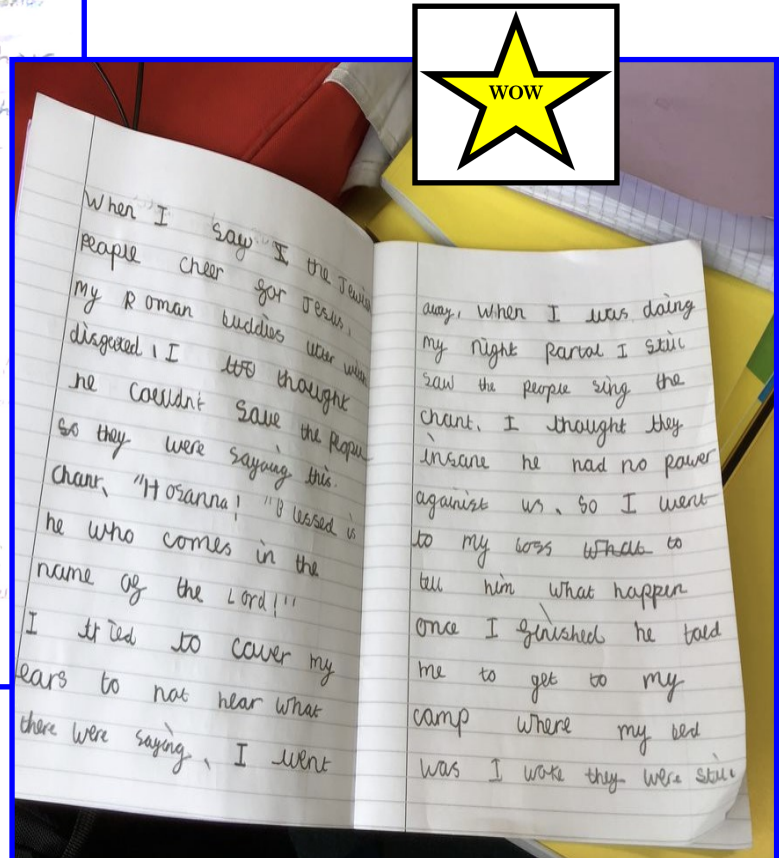 WOW
When I saw I the Jewish
People cheer for Jesus,
My Roman buddies were
disgusted, I too thought
he couldn't save the People
so they were sayaing this
chant, "Hosanna! "Blessed is
he who comes in the
name of the Lord!"
I tried to cover my
ears to not hear what
there were saying, I went
away, when I was doing
my night partol I still
saw the people sing the
chant. I thought they
insane he had no power
againist us, so I went
to my boss whats to
tell him what happen
once I finished he told
me to get to my
camp where my bed
was I woke they were still